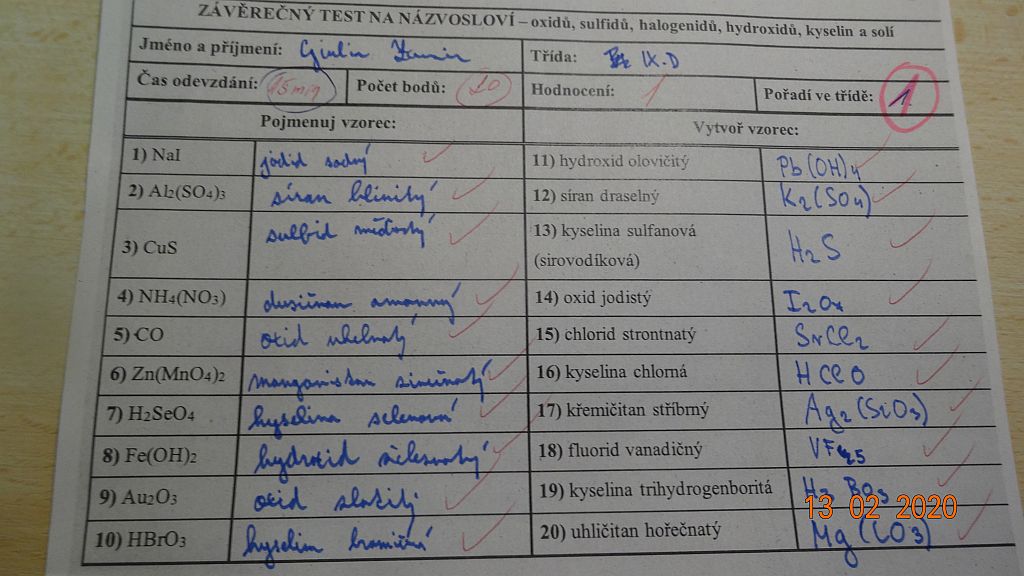 ZÁVĚREČNÝ TEST NA NÁZVOSLOVÍ – oxidů, sulfidů, halogenidů, hydroxidů, kyselin a solí
Jméno a příjmení: Třída: IX.D
Čas odevzdání: 15 min Počet bodů: 20 Hodnocení: 1 Pořadí ve třídě: 1
Pojmenuj vzorec: Vytvoř vzorec:
1) NaI jodid sodný 11) hydroxid olovičitý Pb(OH)4
2) Al2(SO4)3 síran hlinitý 12) síran draselný K2(SO4)
3) CuS sulfid měďnatý 13) kyselina sulfanová (sirovodíková) H2S
4) NH4(NO3) dusičnan amonný 14) oxid jodistý
5) CO oxid uhelnatý 15) chlorid strontnatý SrCl2
6) Zn(MnO4)2 manganistan zinečnatý 16) kyselina chlorná HClO
7) H2SeO4 kyselina selenová 17) křemičitan stříbrný Ag2(SiO3)
8) Fe(OH)2 hydroxid železnatý 18) fluorid vanadičný VF5
9) Au2O3 oxid zlatitý 19) kyselina trihydrogenboritá H3BO3
10) HBrO3 kyselina bromičná 20) uhličitan hořečnatý Mg(CO3)
13 02 2020